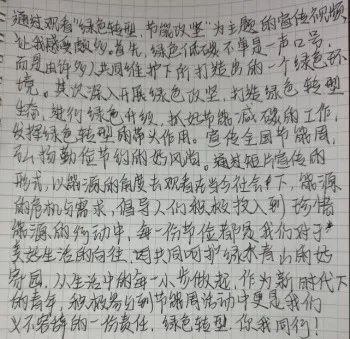 通过观看"绿色转型,节能攻坚"为主题的宣传视频,
让我感触颇多。首先,绿色低碳不单是一声口号,
而是由许多人共同维护下所打造出的一个绿色环
境。其次深入开展绿色攻坚,打造绿色转型
生态,进行绿色升级,抓好节能减碳的工作,
发挥绿色转型的带头作用。宣传全国节能周,
弘扬勤俭节约的好风尚。通过短片宣传的
形式,以能源的角度去观看在当今社会下,能源
的危机与需求,倡导人们积极投入到珍惜
能源的行动中,每一份节俭都是我们对于
美好生活的向往,共同呵护绿水青山的好
家园,从生活中的每一小步做起,作为新时代下
的青年,积极参与到节能周活动中更是我们
义不容辞的一份责任,绿色转型,你我同行!